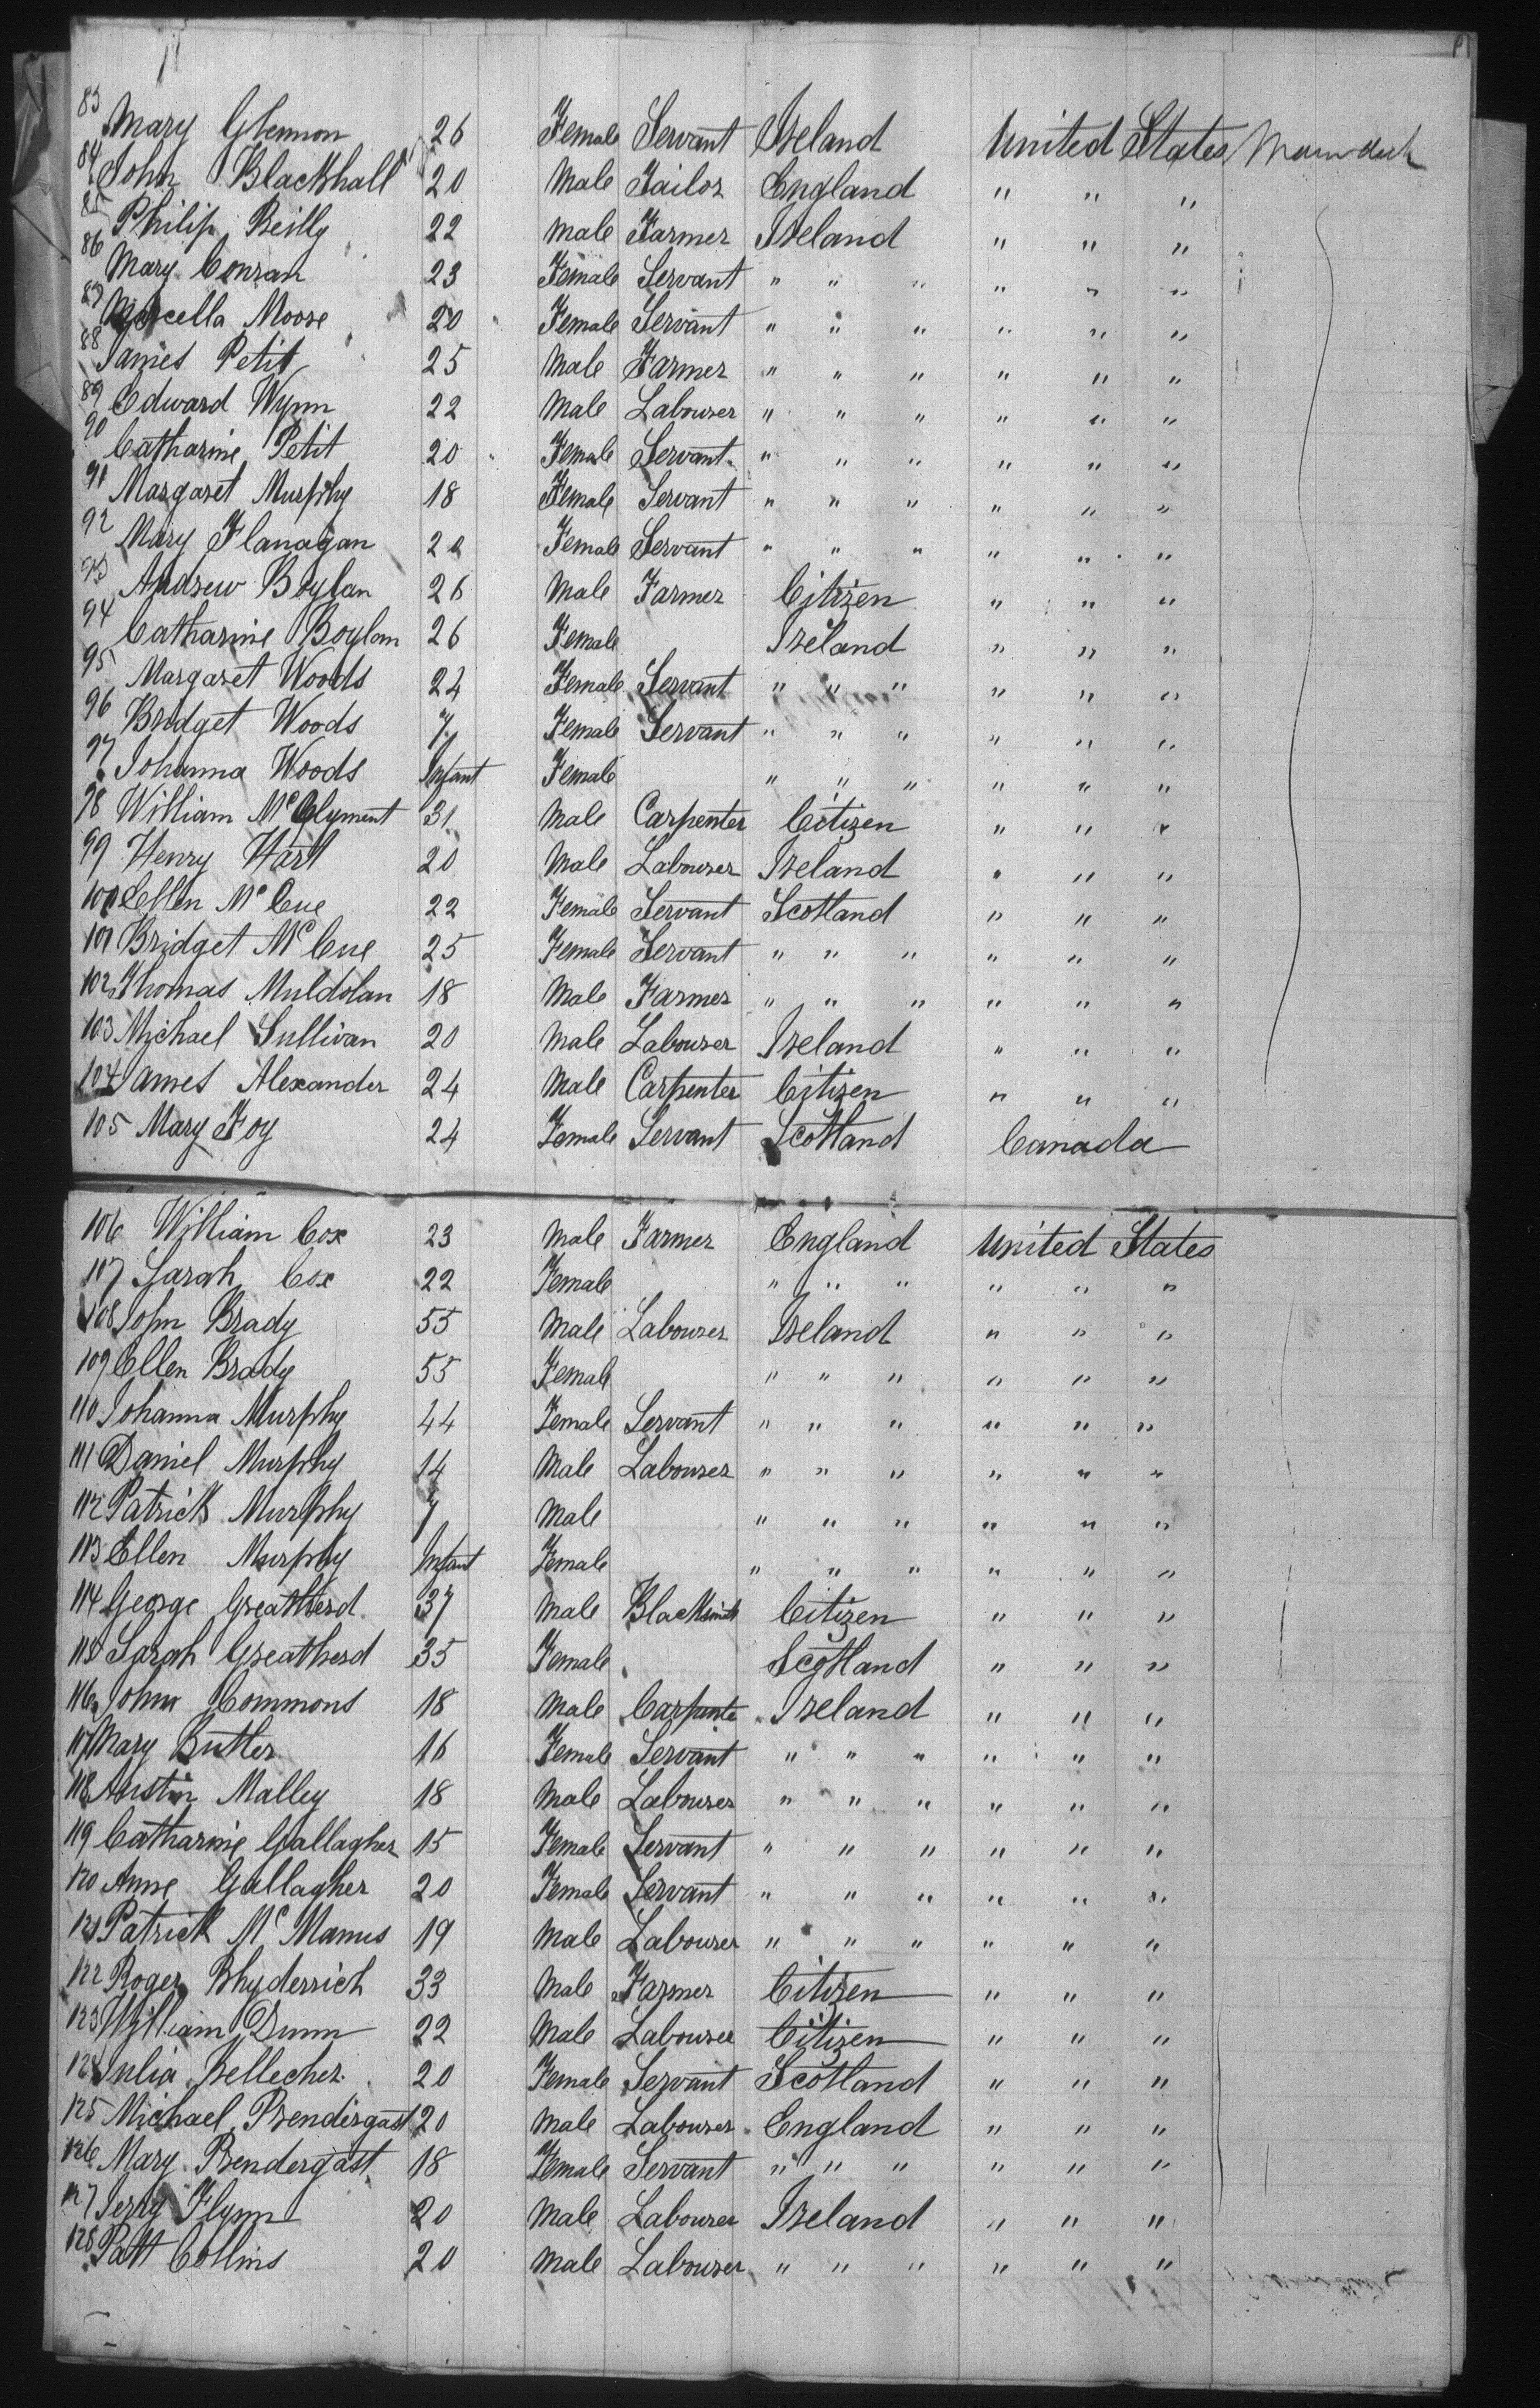 83 Mary Glennon 26 Female Servant Ireland United States Main deck
84 John Blackhall 20 Male Tailor England " " "
85 Philip Reilly 22 Male Farmer Ireland " " "
86 Mary Conran 23 Female Servant " " " " " "
87 Marcella Moore 20 Female Servant " " " " " "
88 James Petit 25 Male Farmer " " " " " "
89 Edward Wynn 22 Male Labourer " " " " " "
90 Catharine Petit 20 Female Servant " " " " " "
91 Margaret Murphy 18 Female Servant " " " " " "
92 Mary Flanagan 20 Female Servant " " " " " "
93 Andrew Boylan 26 Male Farmer Citizen " " "
94 Catharine Boylan 26 Female Ireland " " "
95 Margaret Woods 24 Female Servant " " " " " "
96 Bridget Woods 7 Female Servant " " " " " "
97 Johanna Woods Infant Female " " " " " "
98 William McClyment 31 Male Carpenter Citizen " " "
99 Henry Hart 20 Male Labourer Ireland " " "
100 Ellen McCue 22 Female Servant Scotland " " "
101 Bridget McCue 25 Female Servant " " " " " "
102 Thomas Muldolan 18 Male Farmer " " " " " "
103 Michael Sullivan 20 Male Labourer Ireland " " "
104 James Alexander 24 Male Carpenter Citizen " " "
105 Mary Foy 24 Female Servant Scotland Canada
106 William Cox 23 Male Farmer England United States
107 Sarah Cox 22 Female " " " " " "
108 John Brady 55 Male Labourer Ireland " " "
109 Ellen Brady 55 Female " " " " " "
110 Johanna Murphy 44 Female Servant " " " " " "
111 Daniel Murphy 14 Male Labourer " " " " " "
112 Patrick Murphy 7 Male " " " " " "
113 Ellen Murphy Infant Female " " " " " "
114 George Greatherd 37 Male Blacksmith Citizen " " "
115 Sarah Greatherd 35 Female Scotland " " "
116 John Commons 18 Male Carpente Ireland " " "
117 Mary Butler 16 Female Servant " " " " " "
118 Austin Malley 18 Male Labourer " " " " " "
119 Catharine Gallagher 15 Female Servant " " " " " "
120 Anne Gallagher 20 Female Servant " " " " " "
121 Patrick McManus 19 Male Labourer " " " " " "
122 Roger Rhyderrich 33 Male Farmer Citizen " " "
123 William Dunn 22 Male Labourer Citizen " " "
124 Julia Kellecher 20 Female Servant Scotland " " "
125 Michael Prendergast 20 Male Labourer England " " "
126 Mary Prendergast 18 Female Servant " " " " " "
127 Jerry Flynn 20 Male Labourer Ireland " " "
128 Patt Collins 20 Male Labourer " " " " " "